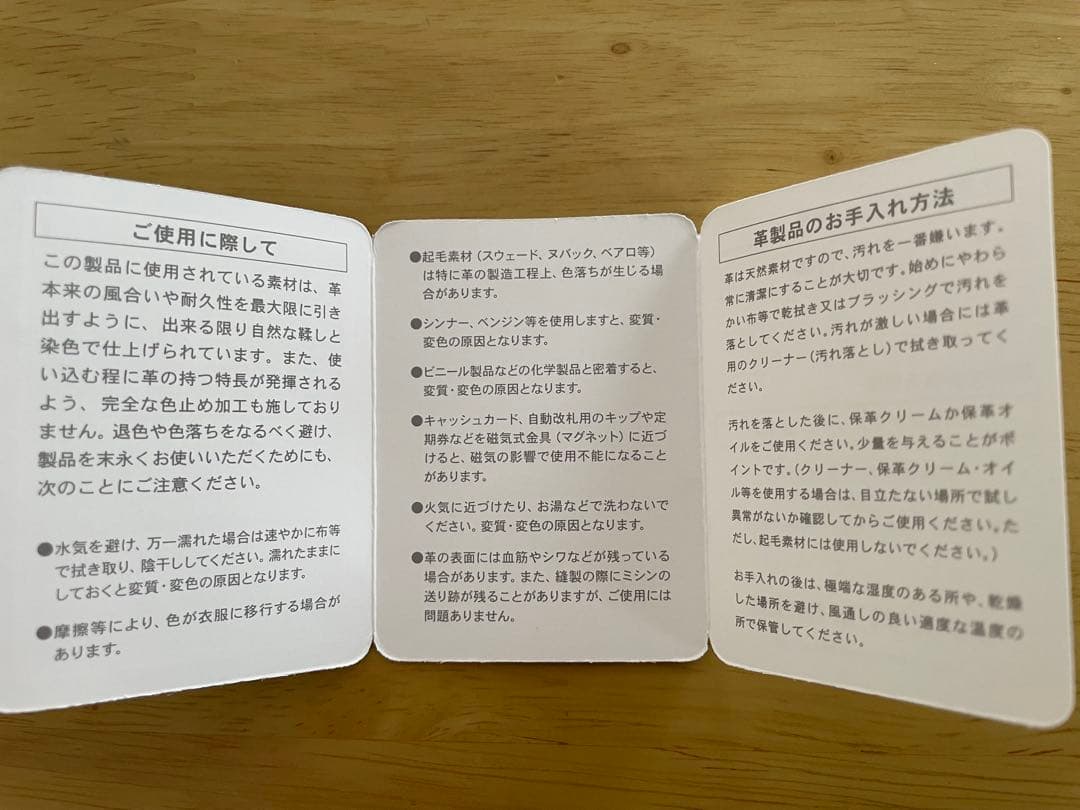 ご使用に際して
この製品に使用されている素材は、革
本来の風合いや耐久性を最大限に引き
出すように、出来る限り自然な鞣しと
染色で仕上げられています。また、使
い込む程に革の持つ特長が発揮される
よう、完全な色止め加工も施しており
ません。退色や色落ちをなるべく避け、
製品を末永くお使いいただくためにも、
次のことにご注意ください。
●水気を避け、万一濡れた場合は速やかに布等
で拭き取り、陰干ししてください。濡れたままに
しておくと変質・変色の原因となります。
●摩擦等により、色が衣服に移行する場合が
あります。
●起毛素材（スウェード、ヌバック、ベアロ等）
は特に革の製造工程上、色落ちが生じる場
合があります。
●シンナー、ベンジン等を使用しますと、変質・
変色の原因となります。
●ビニール製品などの化学製品と密着すると、
変質・変色の原因となります。
●キャッシュカード、自動改札用のキップや定
期券などを磁気式金具（マグネット）に近づ
けると、磁気の影響で使用不能になること
があります。
●火気に近づけたり、お湯などで洗わないで
ください。変質・変色の原因となります。
●革の表面には血筋やシワなどが残っている
場合があります。また、縫製の際にミシンの
送り跡が残ることがありますが、ご使用には
問題ありません。
革製品のお手入れ方法
革は天然素材ですので、汚れを一番嫌います。
常に清潔にすることが大切です。始めにやわら
かい布等で乾拭き又はブラッシングで汚れを
落としてください。汚れが激しい場合には革
用のクリーナー（汚れ落とし）で拭き取ってく
ださい。
汚れを落とした後に、保革クリームか保革オ
イルをご使用ください。少量を与えることがポ
イントです。（クリーナー、保革クリーム・オイ
ル等を使用する場合は、目立たない場所で試し
異常がないか確認してからご使用ください。た
だし、起毛素材には使用しないでください。）
お手入れの後は、極端な湿度のある所や、乾燥
した場所を避け、風通しの良い適度な温度の
所で保管してください。